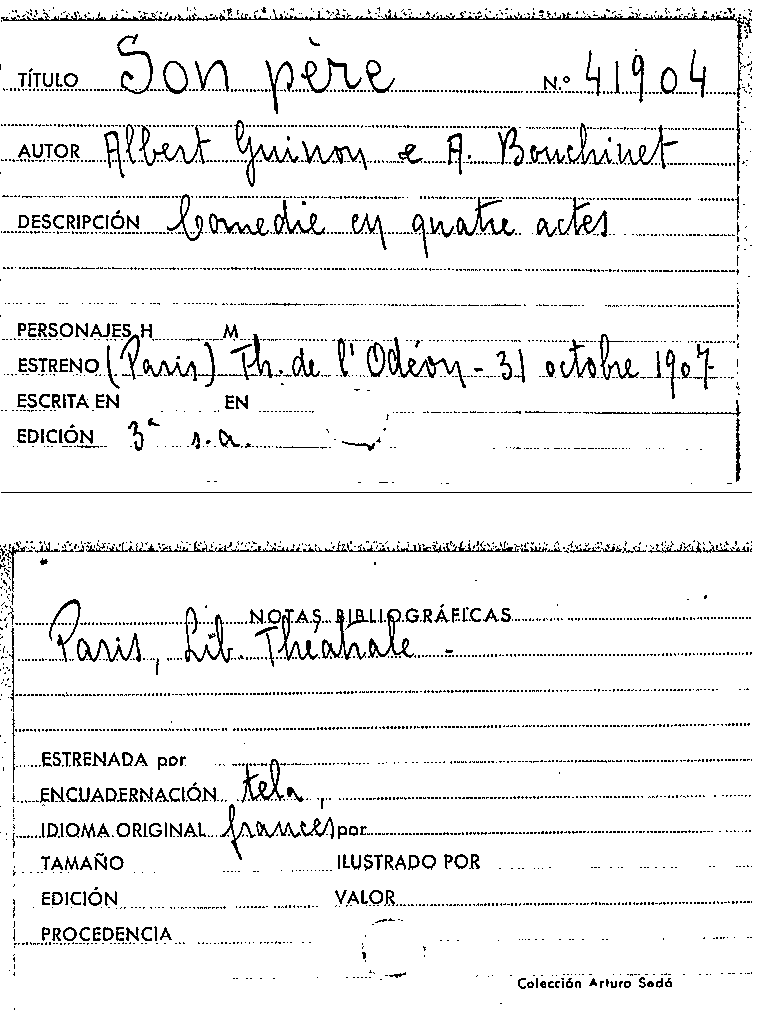 TÍTULO Son père N.º 41904
AUTOR Albert Guinon e A. Bouchinet
DESCRIPCIÓN Comedie en quatre actes
PERSONAJES H M
ESTRENO (Paris) Th. de l'Odéon - 31 octobre 1907
ESCRITA EN EN
EDICIÓN 3ª s.a.
NOTAS BIBLIOGRÁFICAS
Paris, Lib. Théatrale -
ESTRENADA por
ENCUADERNACIÓN tela
IDIOMA ORIGINAL francés por
TAMAÑO ILUSTRADO POR
EDICIÓN VALOR
PROCEDENCIA
Colección Arturo Sedó